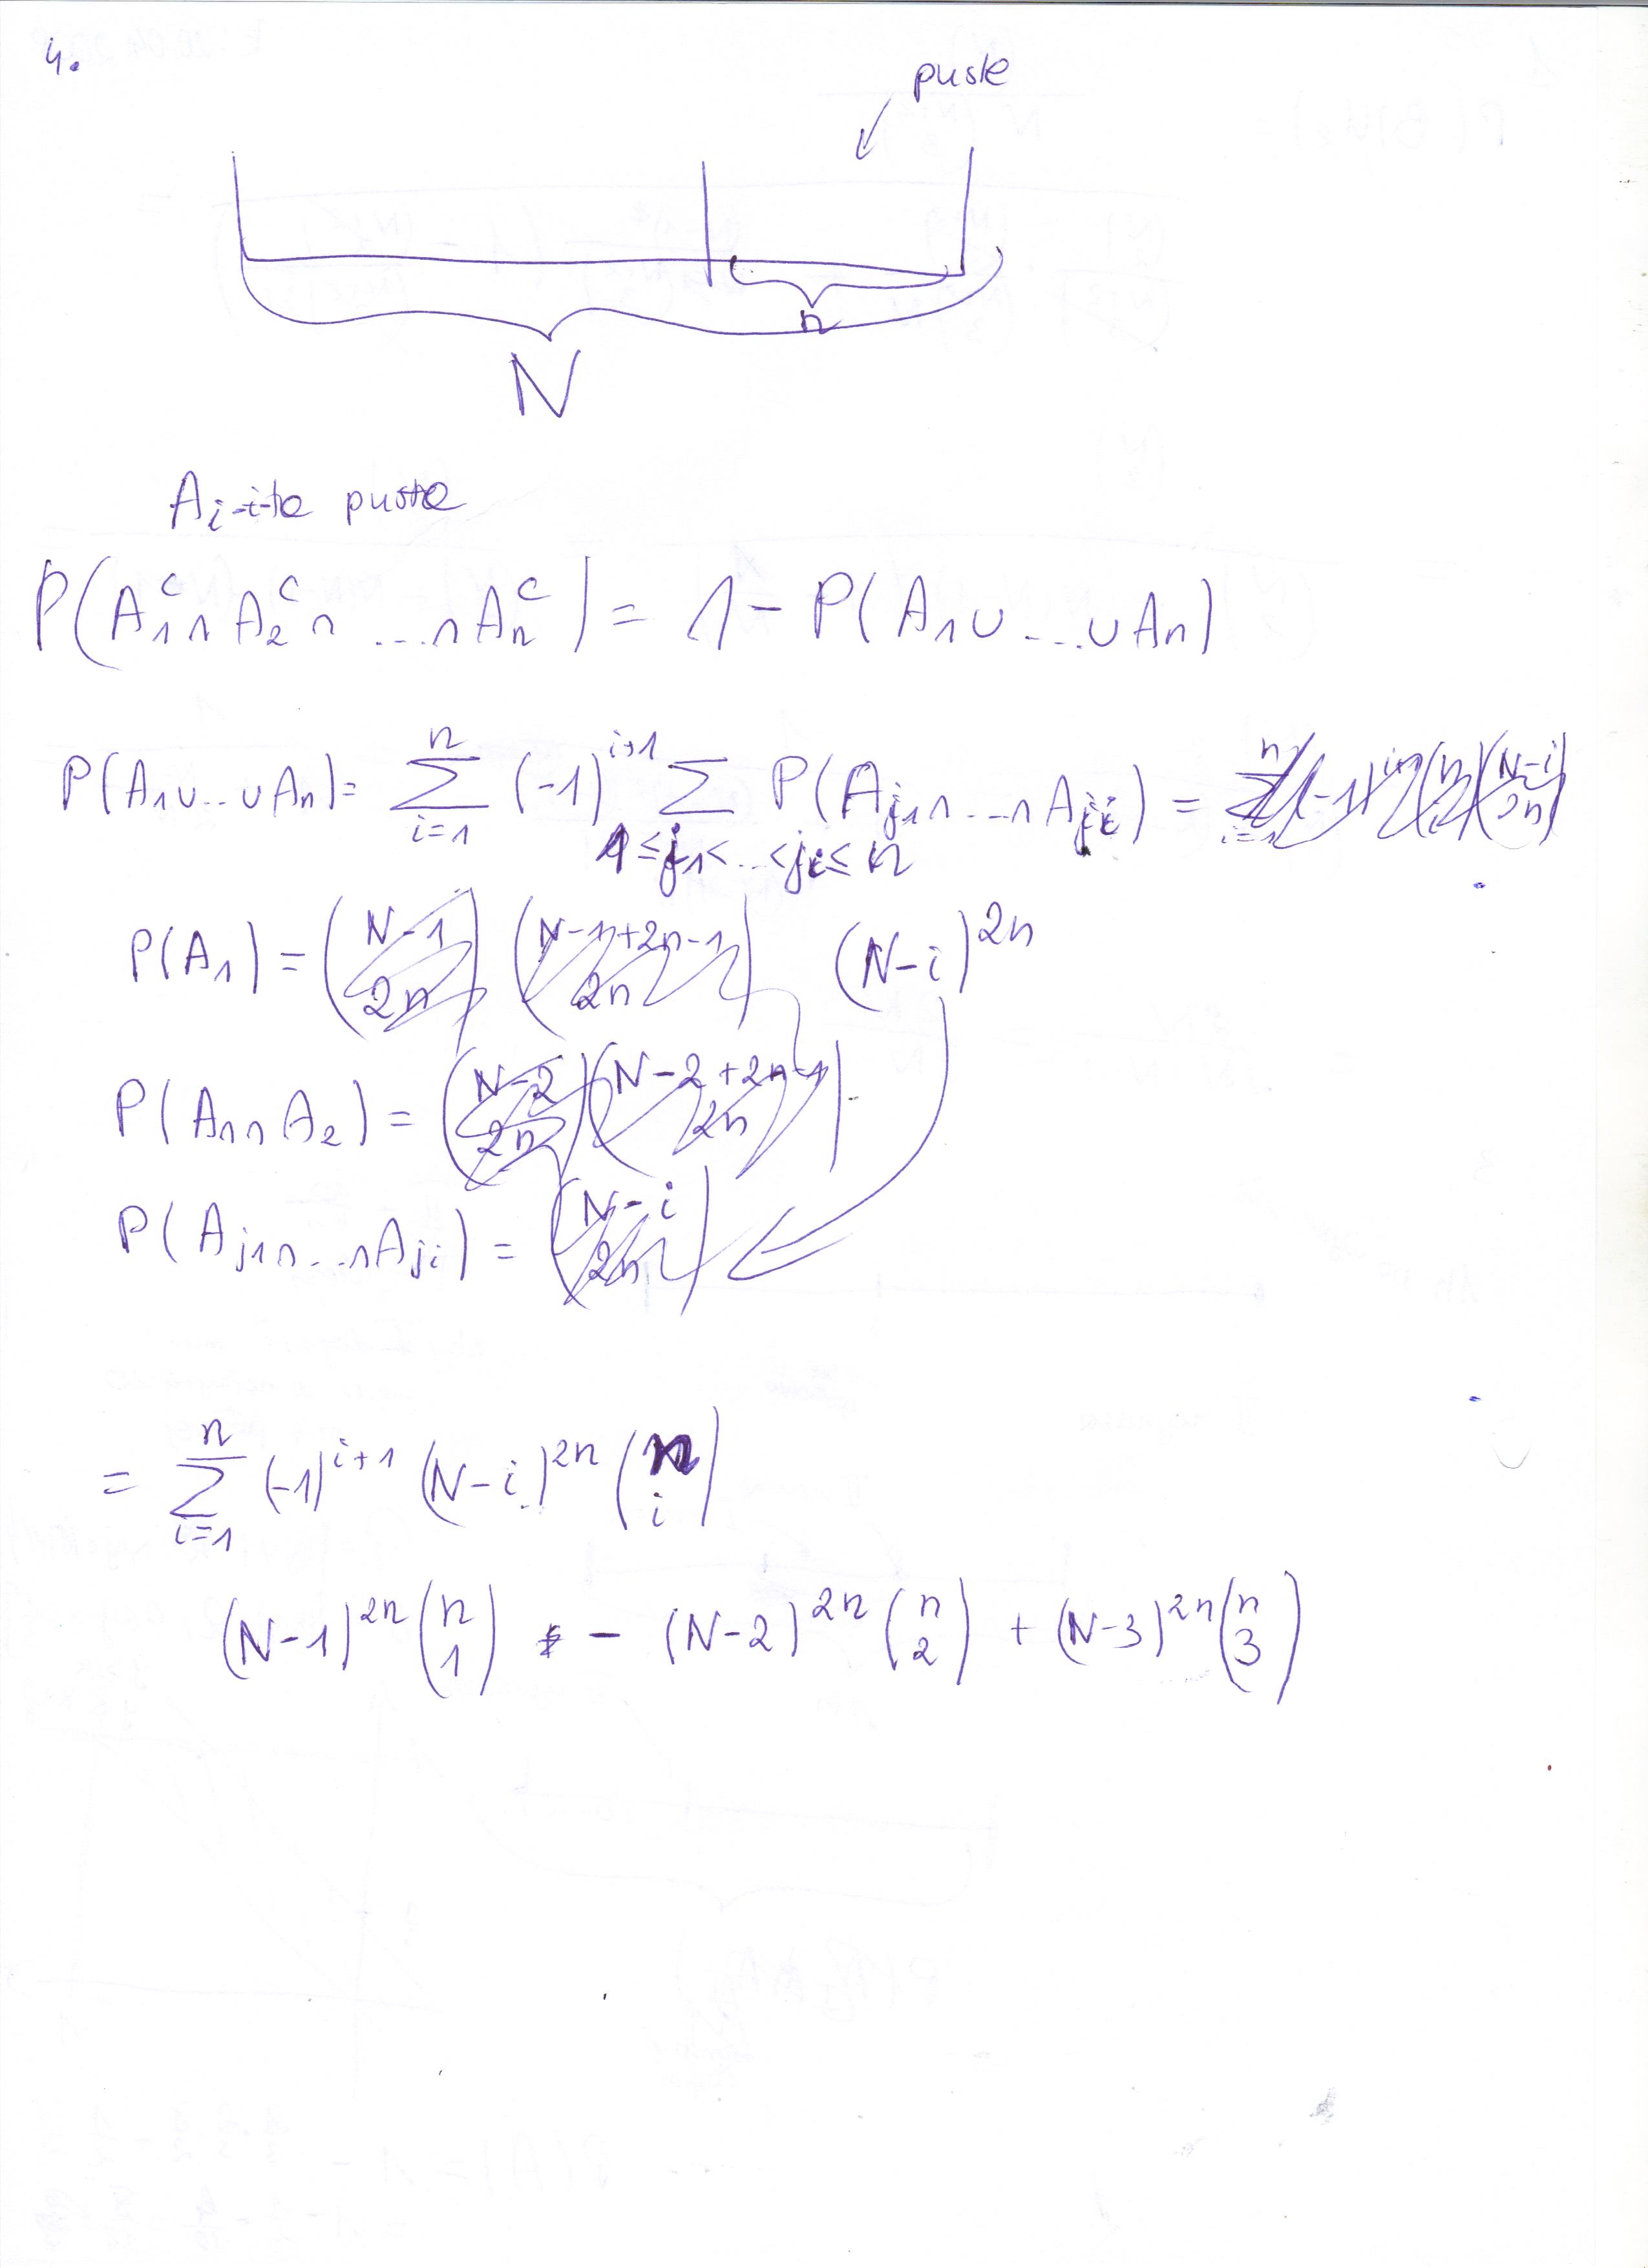 4.
puste
n
N
A_i - i-ta pusta
P(A_1^c ∩ A_2^c ∩ ... ∩ A_n^c) = 1 - P(A_1 ∪ ... ∪ A_n)
P(A_1 ∪ ... ∪ A_n) = \sum_{i=1}^{n} (-1)^{i+1} \sum_{1 ≤ j_1 < ... < j_i ≤ n} P(A_{j_1} ∩ ... ∩ A_{j_i}) = \sum_{i=1}^{n} (-1)^{i+1} \binom{n}{i} \binom{N-i}{2n}
P(A_1) = \binom{N-1}{2n} \binom{N-1+2n-1}{2n} (N-i)^{2n}
P(A_1 ∩ A_2) = \binom{N-2}{2n} \binom{N-2+2n-1}{2n}
P(A_{j1} ∩ ... ∩ A_{ji}) = \binom{N-i}{2n}
= \sum_{i=1}^{n} (-1)^{i+1} (N-i)^{2n} \binom{n}{i}
(N-1)^{2n} \binom{n}{1} - (N-2)^{2n} \binom{n}{2} + (N-3)^{2n} \binom{n}{3}